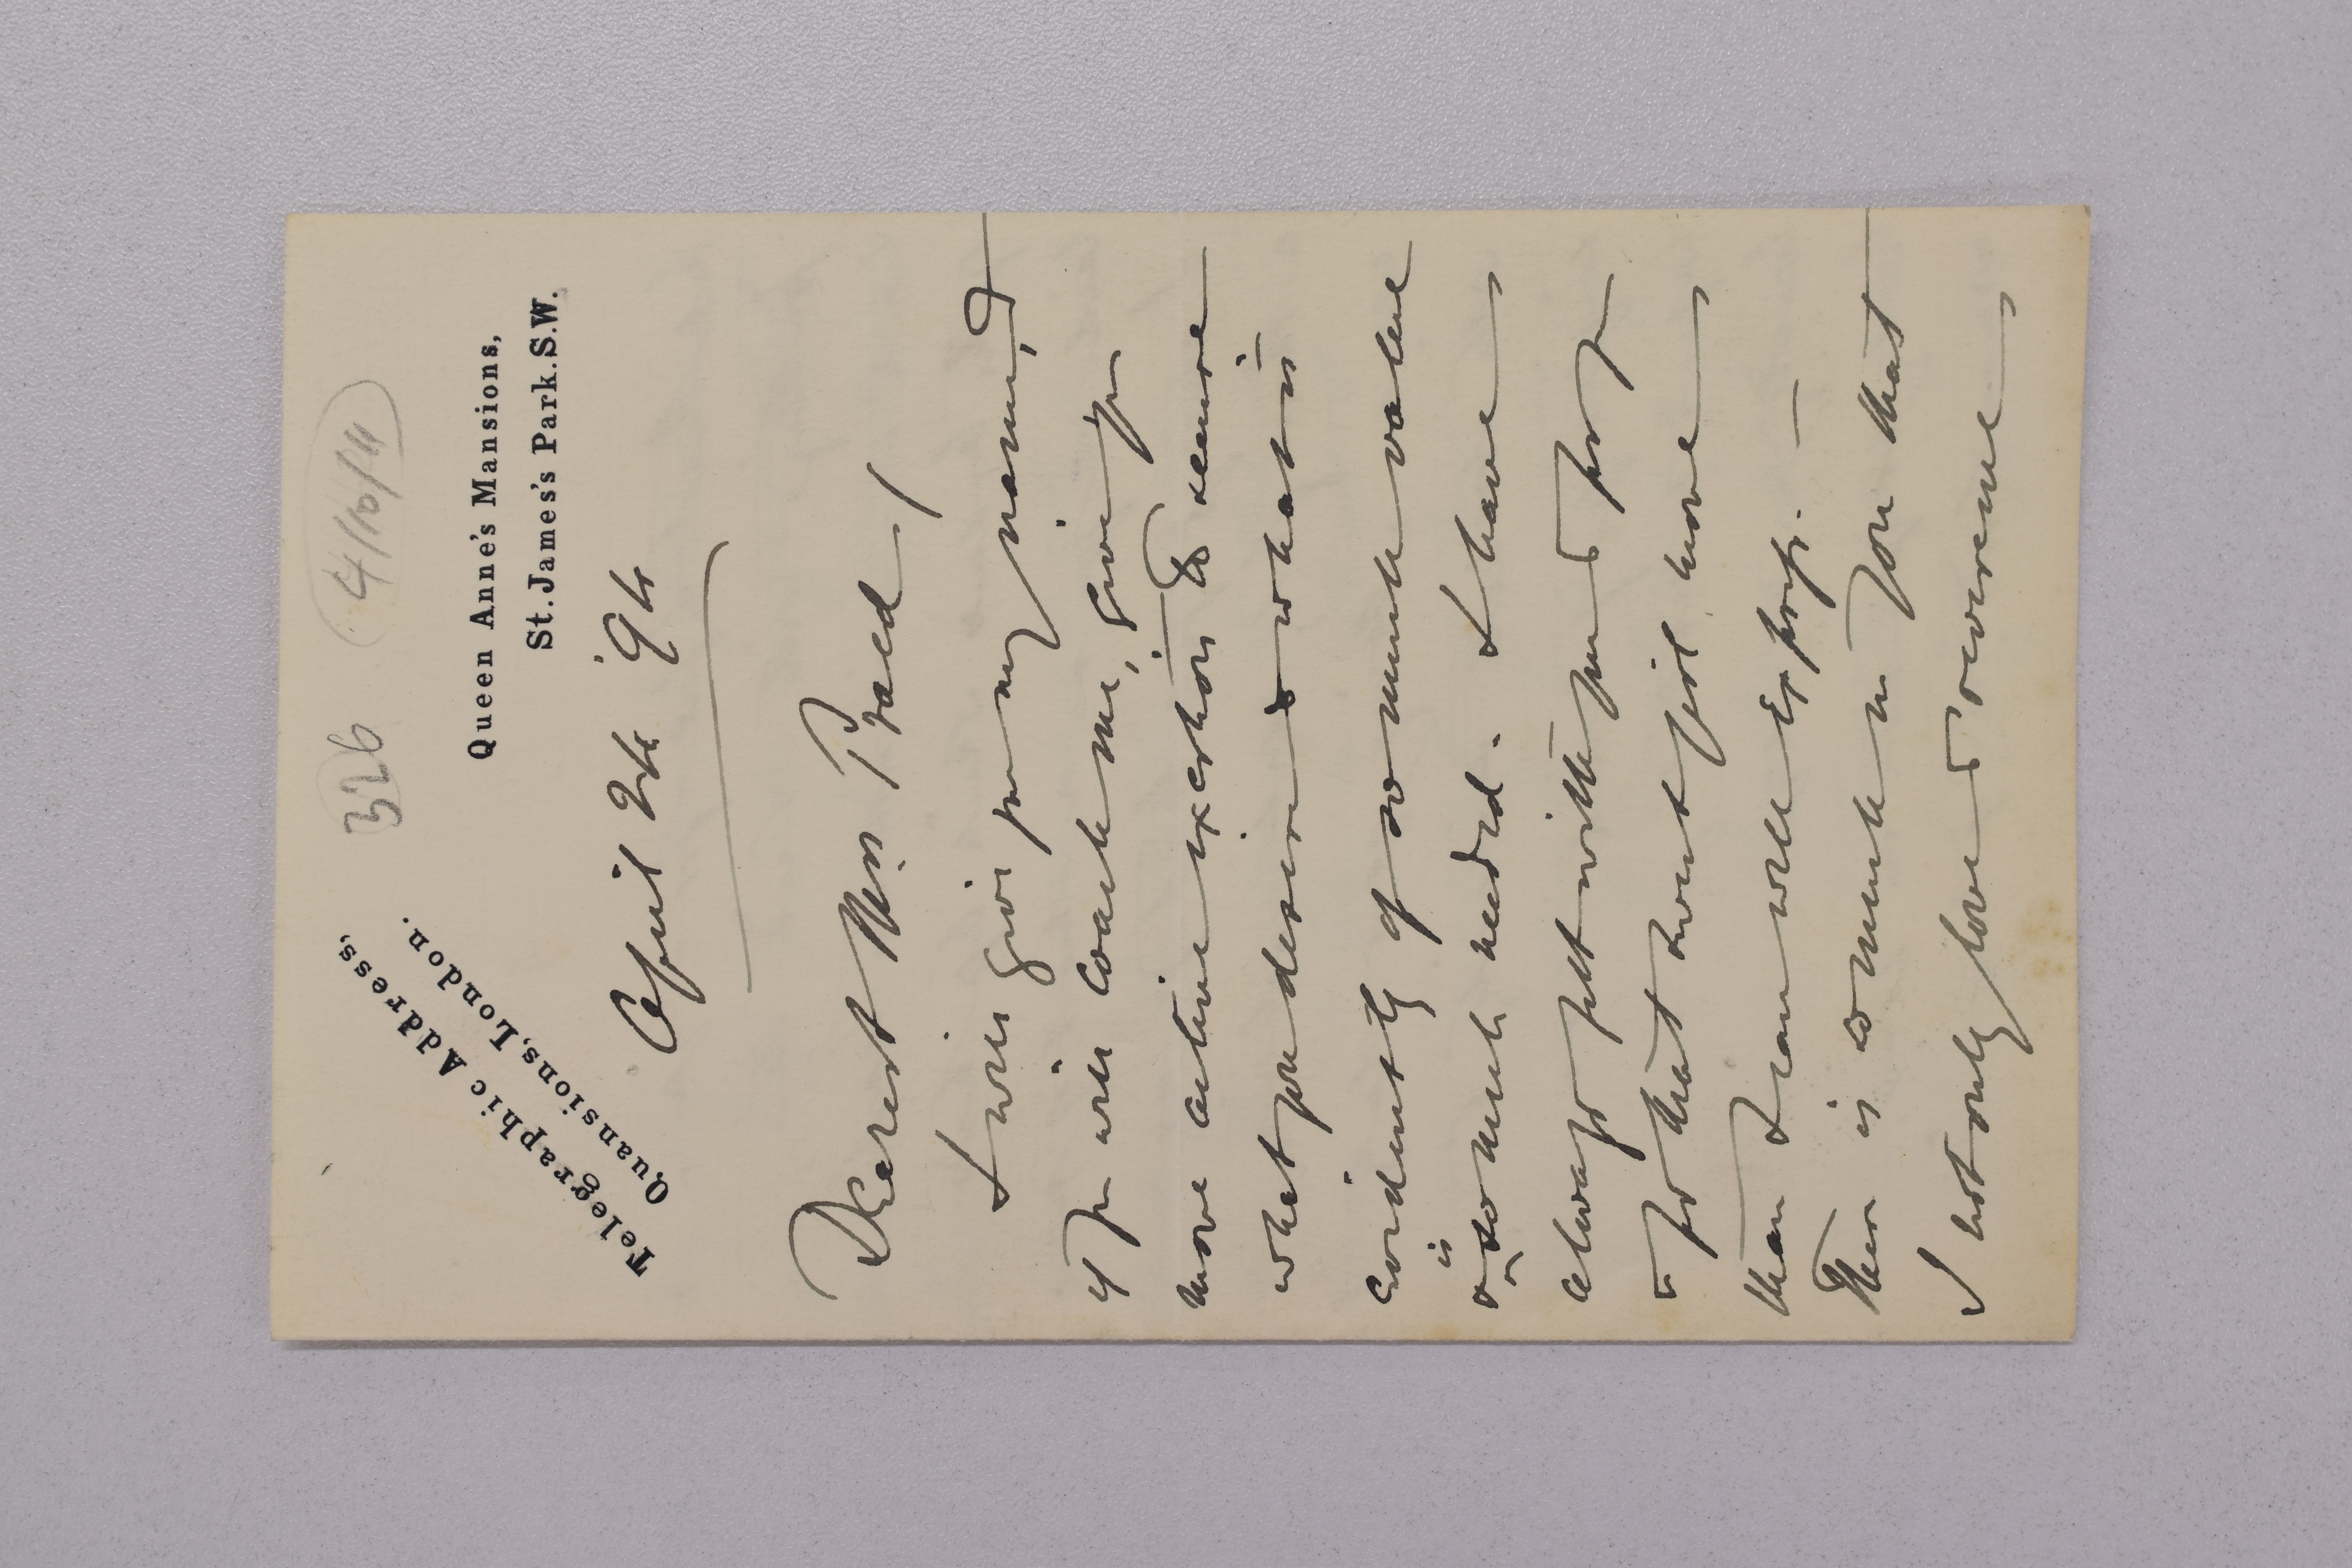 326 4/10/11
Telegraphic Address,
Quansions, London.
Queen Anne's Mansions,
St. James's Park. S.W.
April 24 '94
Dearest Mrs Praed/
I will give you my name, &
if you will coach me, give you
more active exertion to secure
what you desire & what is
evidently of so much value
& is so much needed. I have
always felt with you & for you
& for that sweet girl more
than I can well express. —
There is so much in you that
I not only love & reverence